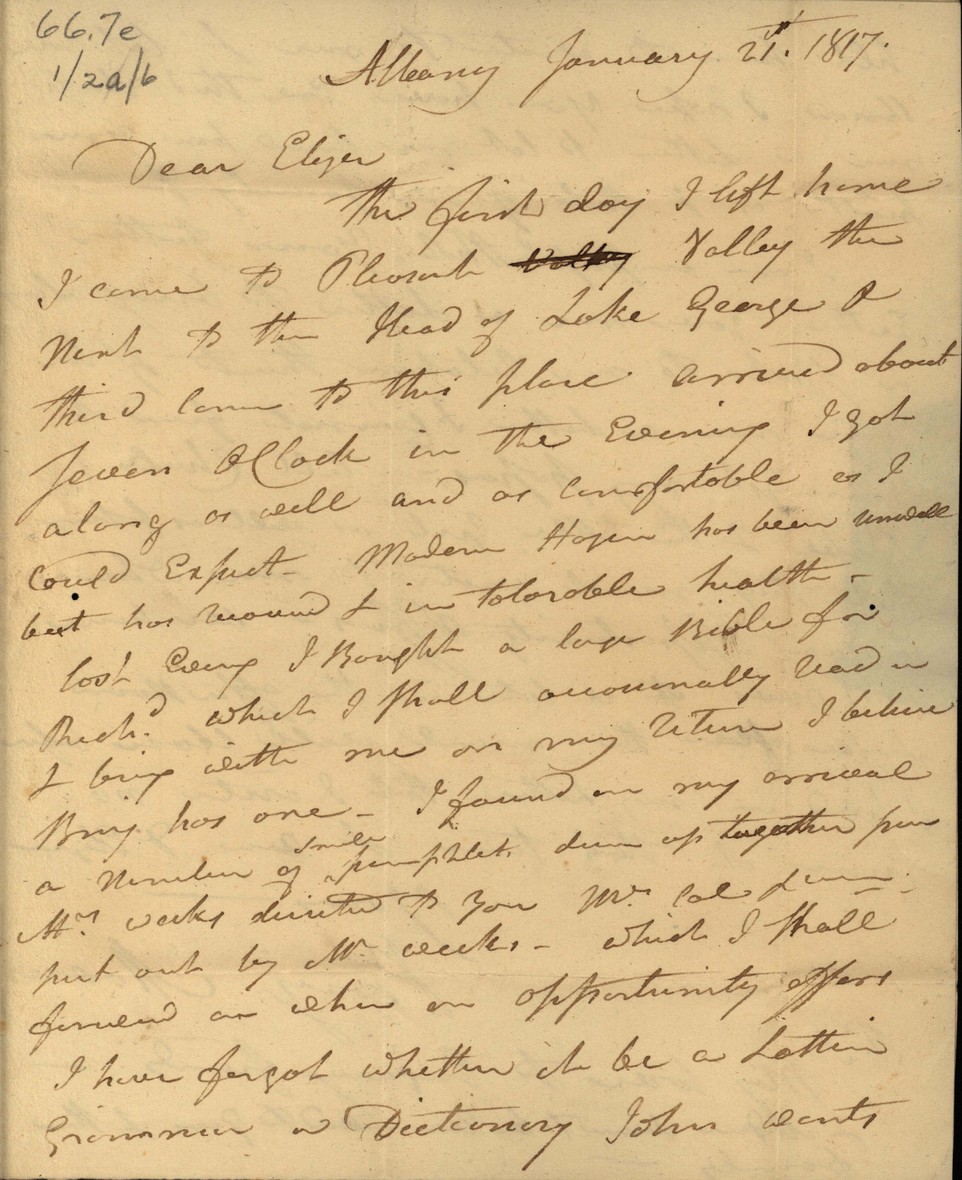 66.7e
1/2a/6
Albany January 21st. 1817.
Dear Eliza
The first day I left home
I came to Pleasant Valley the
Next to the Head of Lake George &
third came to this place arrived about
Seven OClock in the Evening I got
along as well and as comfortable as I
could Expect - Madam Hagen has been unwell
but has recovered & in tolorable health -
last Eveng I Bought a large Bible for
Richd. which I shall occasionally read in
& bring with me on my return I believe
Benj has one - I found on my arrival
a Number of small pamphlets done up together from
Mrs. weeks directed to you Mrs.
put out by Mr. weeks - which I shall
forward on when an opportunity offers
I have forgot whether it be a Lattin
Grammer or Dictionary John wants